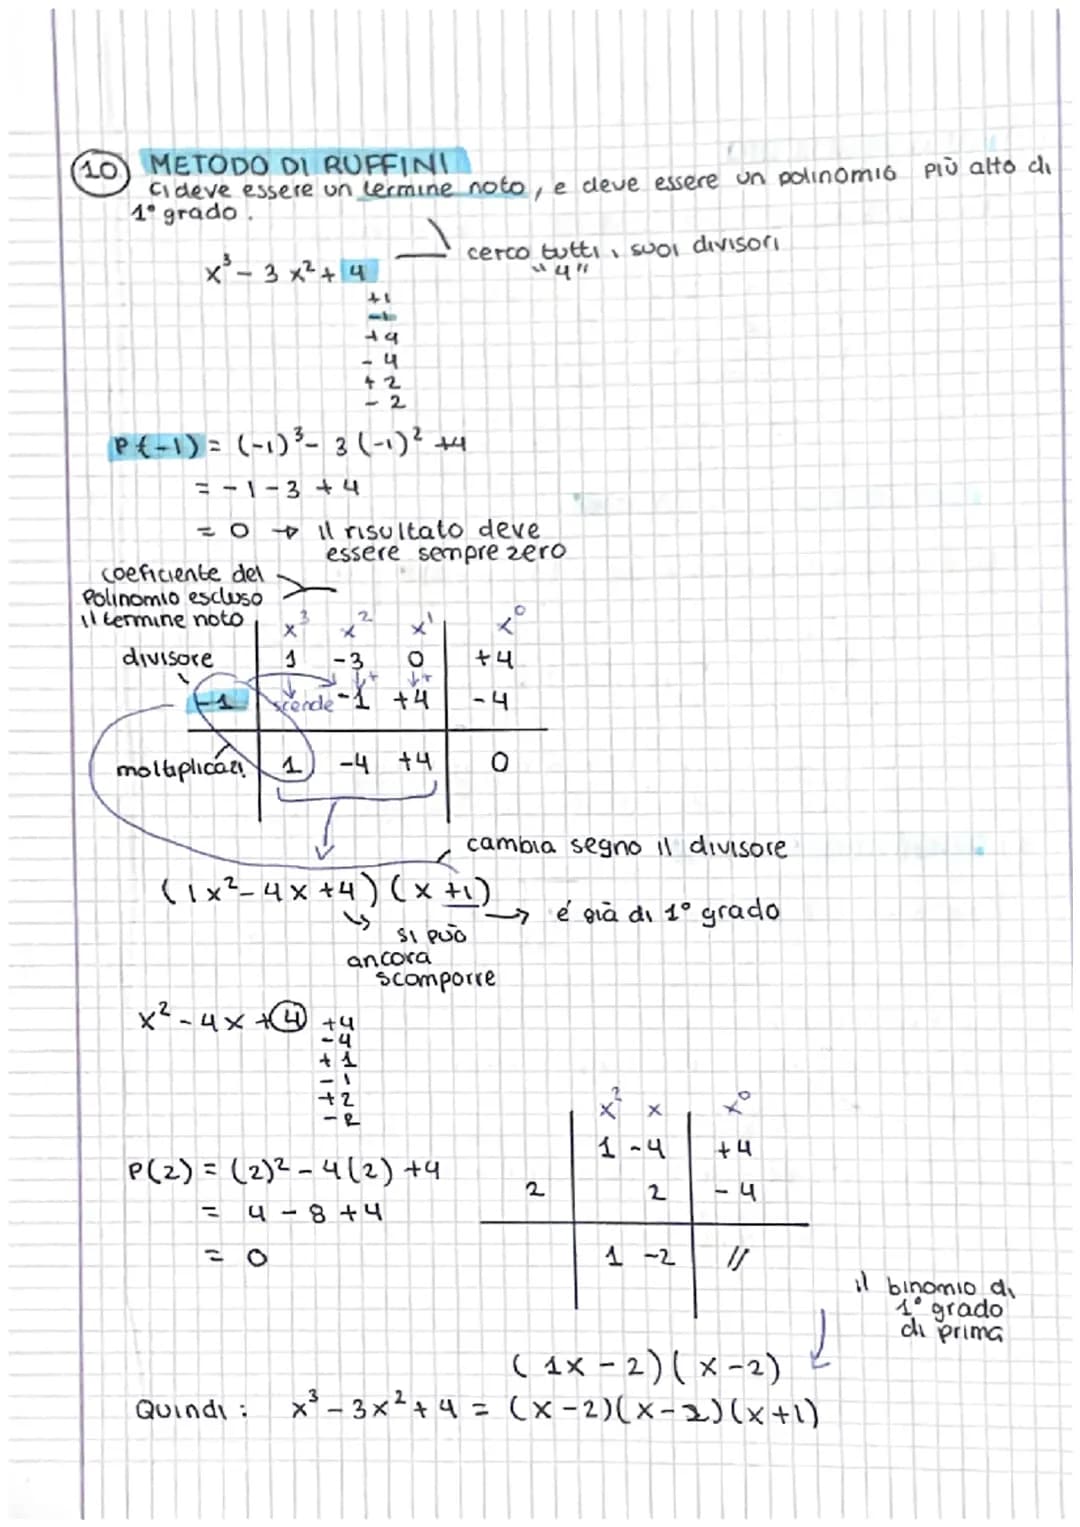 10 METODO DI RUFFINI
Ci deve essere un termine noto, e deve essere un polinomio più alto di
1° grado.
cerco tutti i suoi divisori
"4"
x³ - 3x² + 4
+1
-1
+4
-4
+2
-2
P(-1) = (-1)³ - 3(-1)² +4
= -1 - 3 + 4
= 0 → il risultato deve
essere sempre zero
coeficiente del
Polinomio escluso
il termine noto
x³ x² x¹ x⁰
divisore 1 -3 0 +4
-1 scende -1 +4 -4
moltiplicàzi 1 -4 +4 0
cambia segno il divisore
(1x² - 4x + 4)(x +1) → é già di 1° grado
si può
ancora
scomporre
x² - 4x + 4
+4
-4
+1
-1
+2
-2
x² x x⁰
1 -4 +4
2 2 -4
1 -2 //
P(2) = (2)² - 4(2) +4
= 4 - 8 + 4
= 0
il binomio di
1° grado
di prima
(1x - 2)(x - 2)
Quindi: x³ - 3x² + 4 = (x - 2)(x - 2)(x + 1)